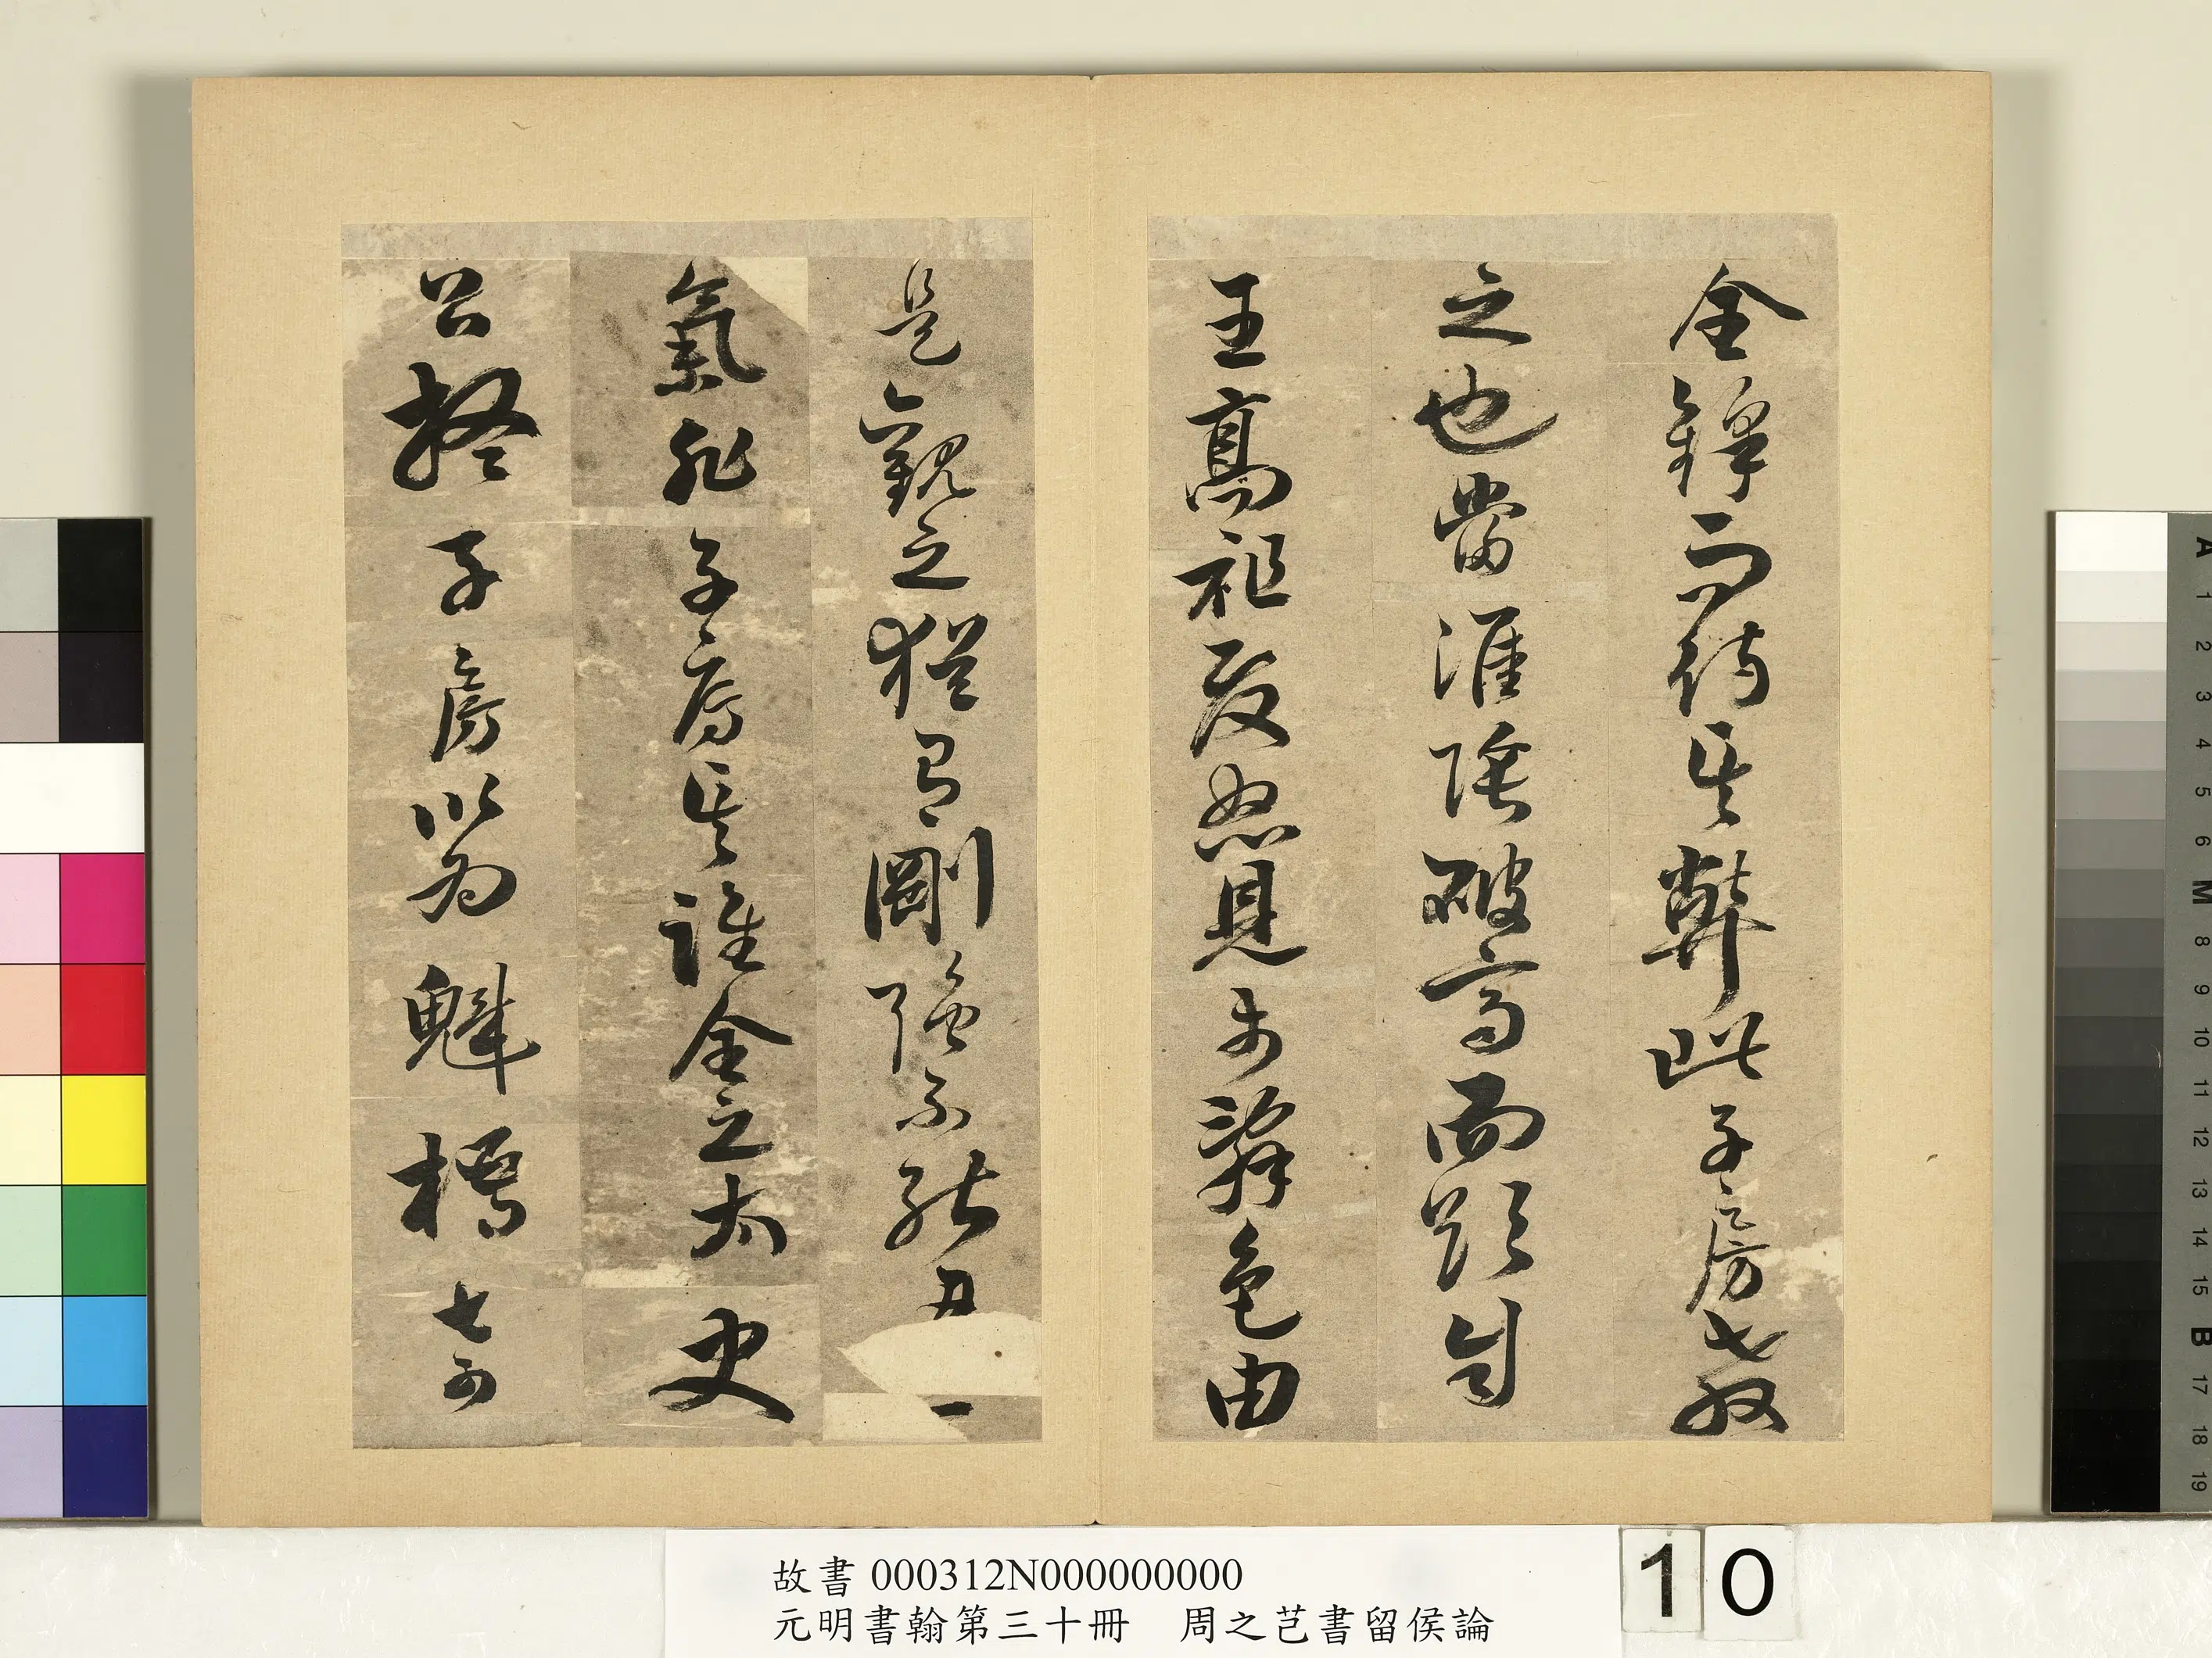 全鋒而待其弊此子房教
之也當淮陰破齊而欲自
王高祖發怒見於辭色由
是觀之猶有剛強不能忍
氣非子房其誰全之太史
公疑子房以為魁梧奇
故書 000312N000000000
元明書翰第三十冊 周之芑書留侯論
10
A 1 2 3 4 5 6 M 8 9 10 11 12 13 14 15 B 17 18 19